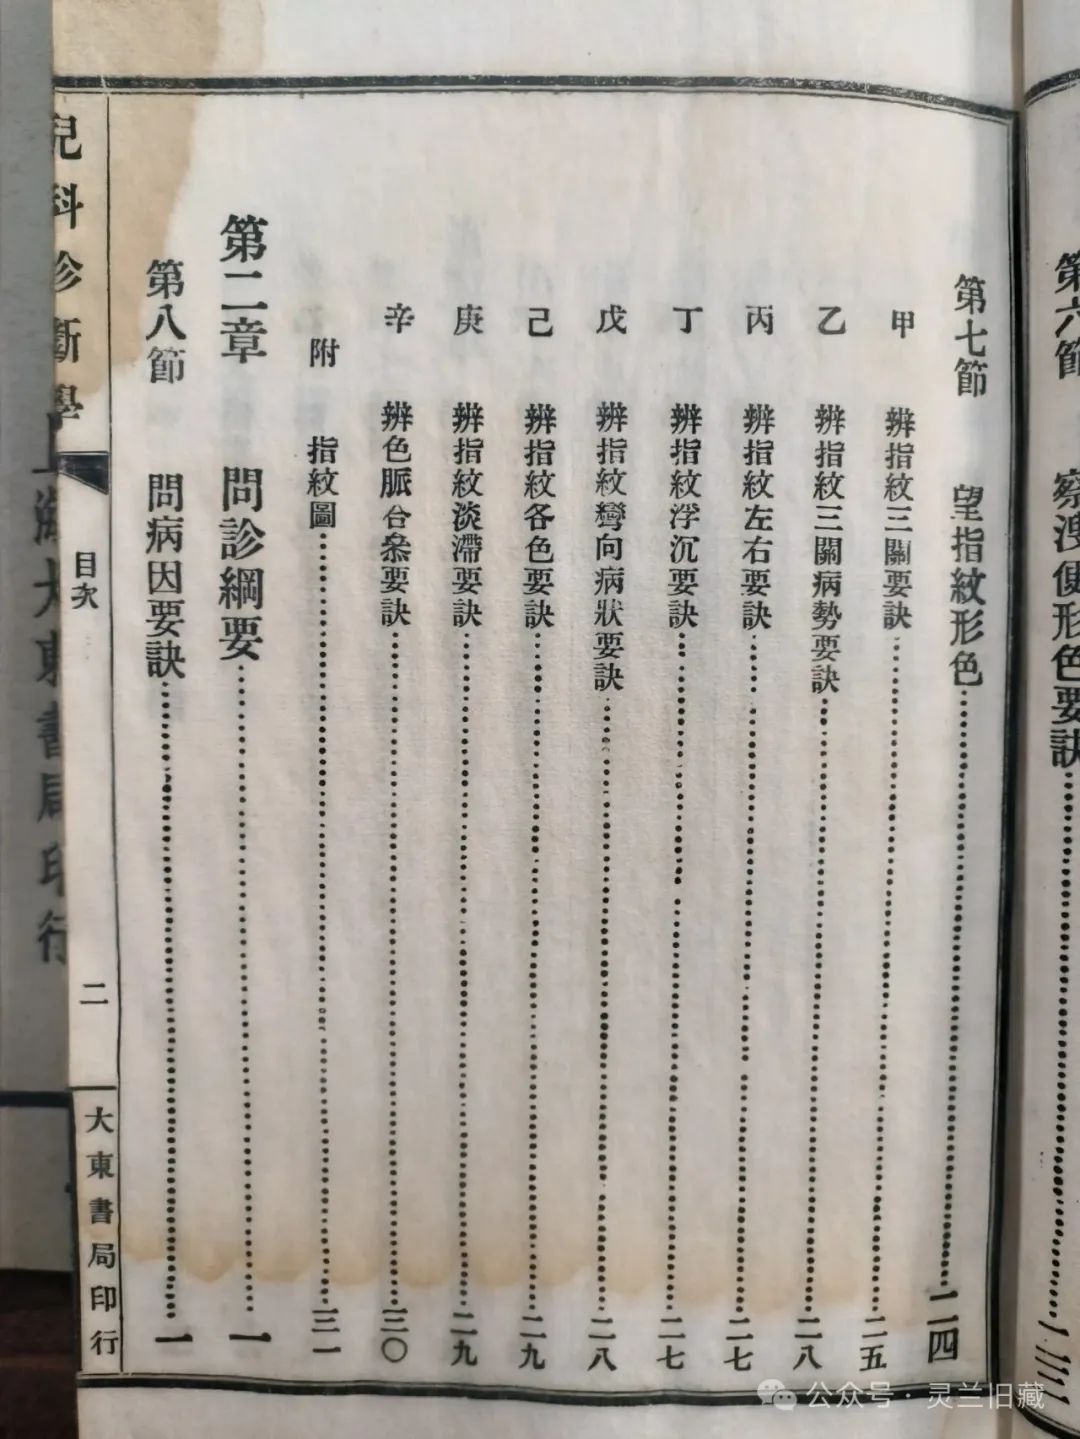 第六節 察溲便形色要訣
第七節 望指紋形色 二四
甲 辨指紋三關要訣 二五
乙 辨指紋三關病勢要訣 二八
丙 辨指紋左右要訣 二七
丁 辨指紋浮沉要訣 二七
戊 辨指紋彎向病狀要訣 二八
己 辨指紋各色要訣 二九
庚 辨指紋淡滯要訣 二九
辛 辨色脈合參要訣 三〇
附 指紋圖 三一
第二章 問診綱要 一
第八節 問病因要訣 一
兒科診斷學
目次
二
大東書局印行
上海大東書局印行
公众号·灵兰旧藏